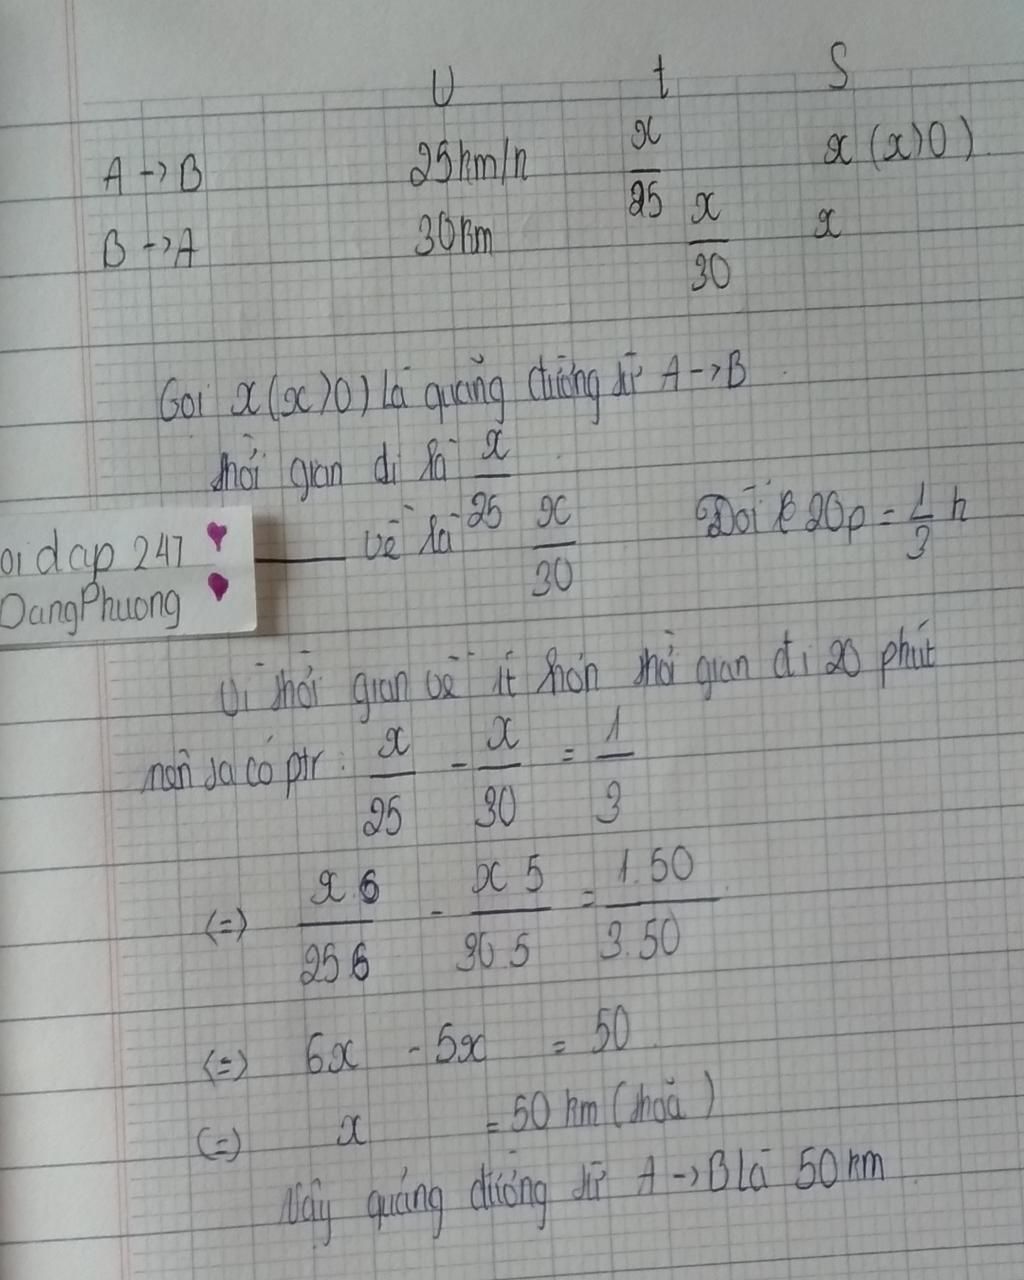 v t S
A -> B 25km/h x/25 x (x>0)
B -> A 30km x/30 x
Gọi x (x>0) là quãng đường từ A -> B
thời gian đi là x/25
về là x/30 Đổi 20p = 1/3 h
oi dap 247
DangPhuong
Vì thời gian về ít hơn thời gian đi 20 phút
nên ta có ptr: x/25 - x/30 = 1/3
(=) x.6/25.6 - x.5/30.5 = 1.50/3.50
(=) 6x - 5x = 50
(=) x = 50 km (thoả)
Vậy quãng đường từ A -> B là 50 km